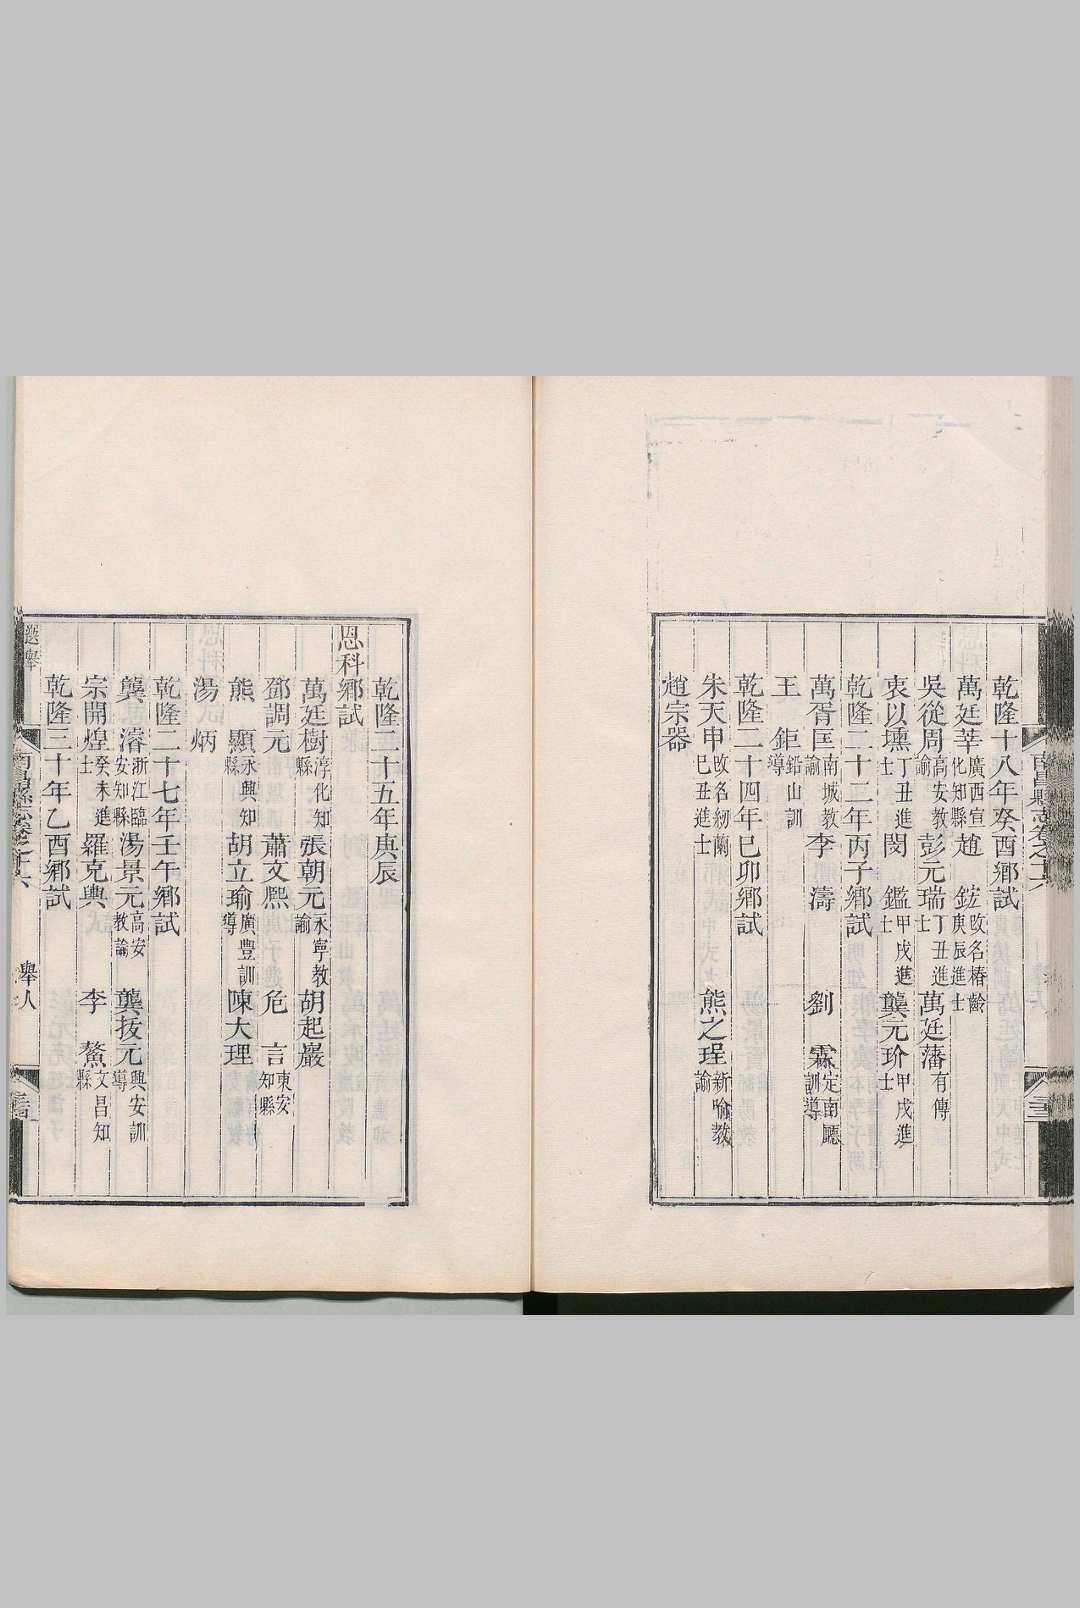 南昌縣志卷之十六
乾隆十八年癸酉鄉試
萬廷莘廣西宣化知縣 趙鋐改名椿齡庚辰進士
吳從周高安教諭 彭元瑞丁丑進士 萬廷藩有傳
衷以壎丁丑進士 閔鑑甲戌進士 龔元玠甲戌進士
乾隆二十二年丙子鄉試
萬胥匡南城教諭 李濤 劉霖定南廳訓導
王鉅鉛山訓導
乾隆二十四年巳卯鄉試
朱天申改名紉蘭巳丑進士 熊之珵新喻教諭
趙宗器
乾隆二十五年庚辰
恩科鄉試
萬廷樹淳化知縣 張朝元永寧教諭 胡起巖
鄧調元 蕭文熙 危言東安知縣
熊顯永興知縣 胡立瑜廣豐訓導 陳大理
湯炳
乾隆二十七年壬午鄉試
龔濬浙江臨安知縣 湯景元高安教諭 龔抜元興安訓導
宗開煌癸未進士 羅克典 李鰲文昌知縣
乾隆三十年乙酉鄉試
選舉 南昌縣志卷之十六 舉人